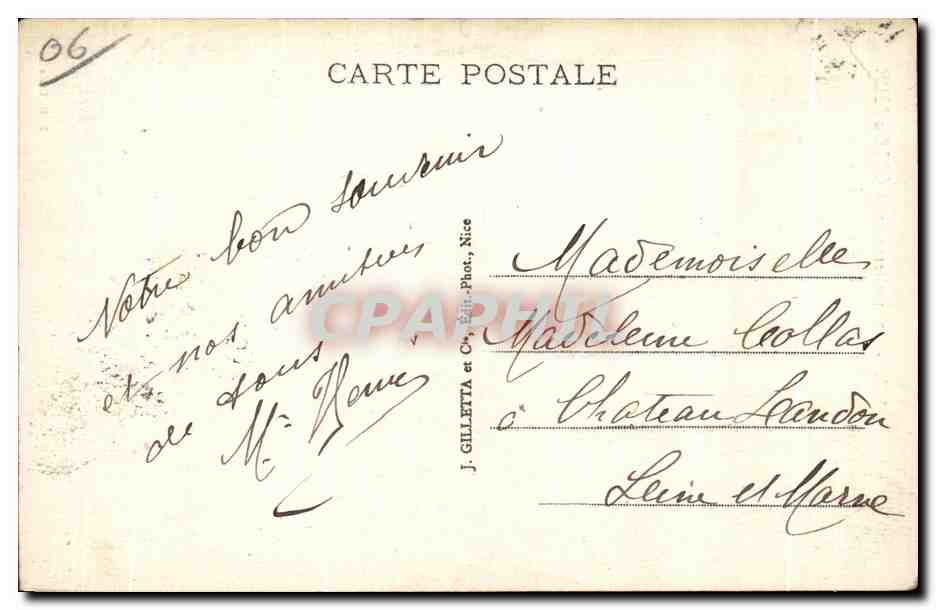 06
CARTE POSTALE
Notre bon souvenir
et nos amitiés
de tous
M.
J. GILLETTA et Cie, Édit.-Phot., Nice
CPAPHIL
Mademoiselle
Madeleine Collas
à Chateau Landon
Seine et Marne